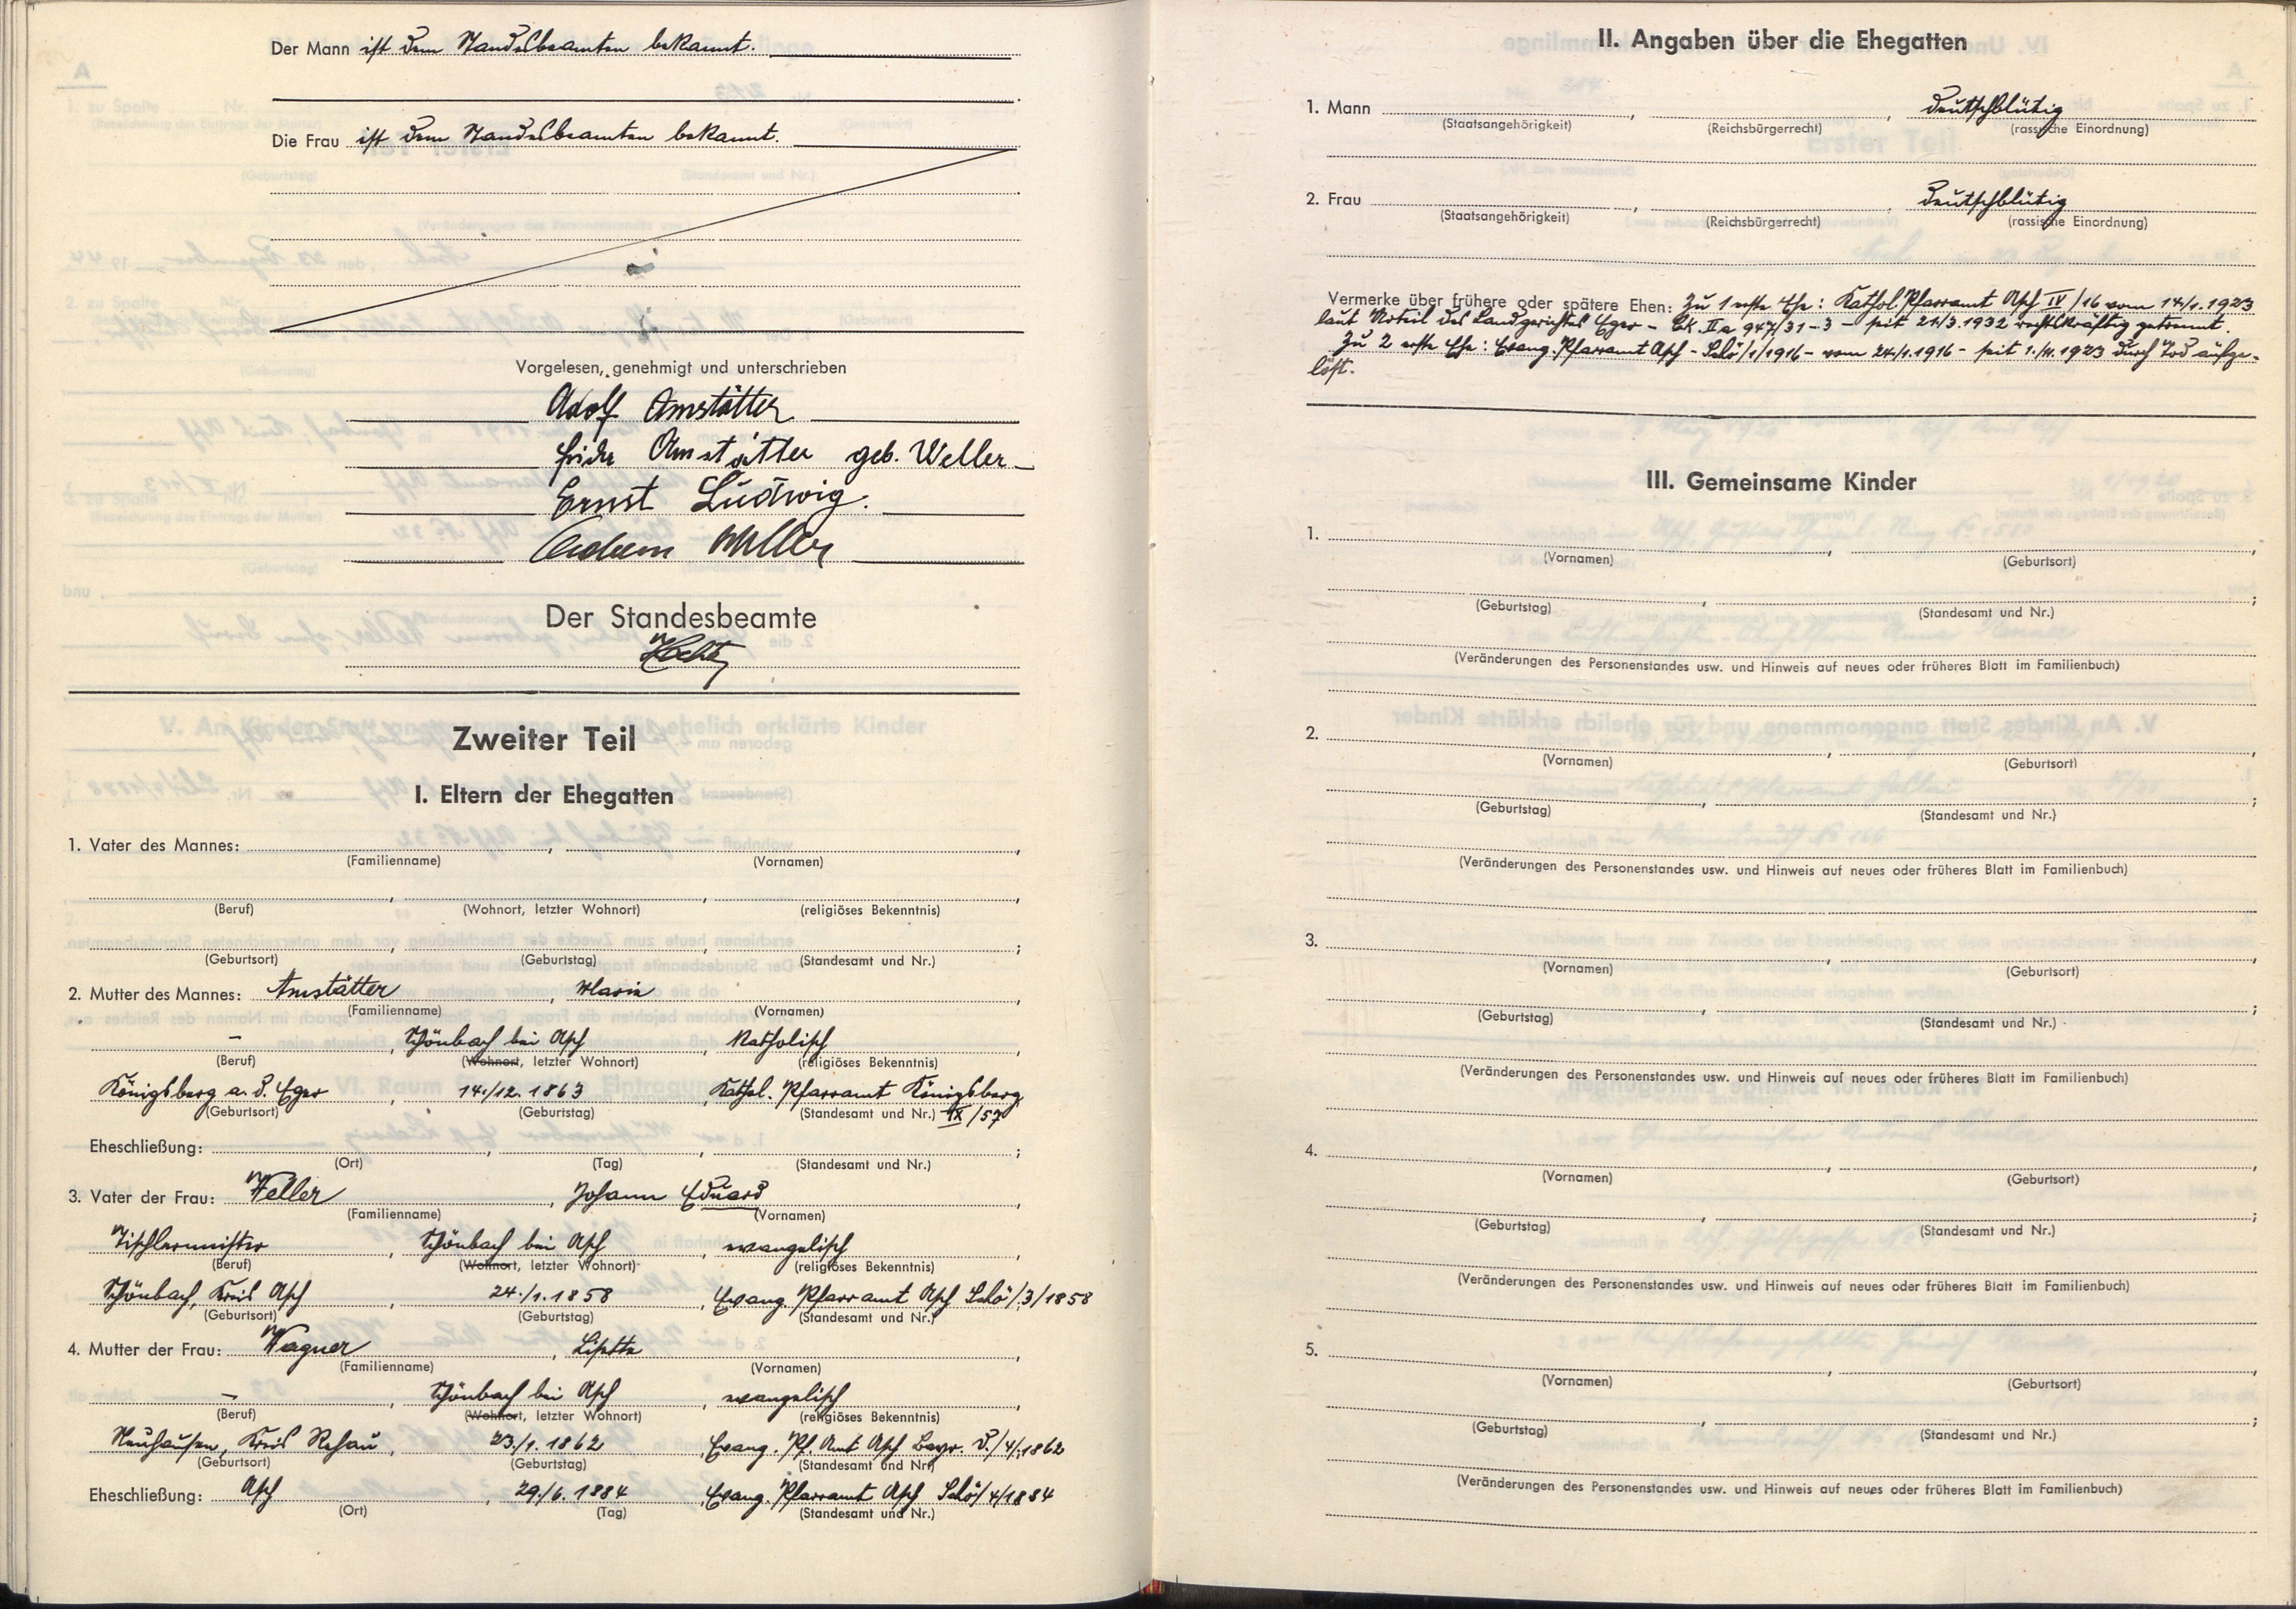 Der Mann ist dem Standesbeamten bekannt.
Die Frau ist dem Standesbeamten bekannt.
Vorgelesen, genehmigt und unterschrieben
Adolf Amstätter
Frida Amstätter geb. Weller
Ernst Ludwig.
Weller
Der Standesbeamte
Zweiter Teil
I. Eltern der Ehegatten
1. Vater des Mannes: , ,
(Familienname) (Vornamen)
, , ,
(Beruf) (Wohnort, letzter Wohnort) (religiöses Bekenntnis)
, , ;
(Geburtsort) (Geburtstag) (Standesamt und Nr.)
2. Mutter des Mannes: Amstätter , Maria ,
(Familienname) (Vornamen)
– , Schönbach bei Asch , Katholisch ,
(Beruf) (Wohnort, letzter Wohnort) (religiöses Bekenntnis)
Königsberg a. d. Eger , 14./12. 1863 , Kathol. Pfarramt Königsberg
(Geburtsort) (Geburtstag) (Standesamt und Nr.) IX/57
Eheschließung: , , ;
(Ort) (Tag) (Standesamt und Nr.)
3. Vater der Frau: Weller , Johann Eduard ,
(Familienname) (Vornamen)
Tischlermeister , Schönbach bei Asch , evangelisch ,
(Beruf) (Wohnort, letzter Wohnort) (religiöses Bekenntnis)
Schönbach, Kreis Asch , 24./1. 1858 , Evang. Pfarramt Asch Schö/3/1858
(Geburtsort) (Geburtstag) (Standesamt und Nr.)
4. Mutter der Frau: Wagner , Lisette ,
(Familienname) (Vornamen)
– , Schönbach bei Asch , evangelisch ,
(Beruf) (Wohnort, letzter Wohnort) (religiöses Bekenntnis)
Neuhausen, Kreis Rehau , 23./1. 1862 , Evang. Pf. Amt Asch Bayr. D./4/1862
(Geburtsort) (Geburtstag) (Standesamt und Nr.)
Eheschließung: Asch , 29/6. 1884 , Evang. Pfarramt Asch Schö/4/1884
(Ort) (Tag) (Standesamt und Nr.)
II. Angaben über die Ehegatten
1. Mann , , deutschblütig
(Staatsangehörigkeit) (Reichsbürgerrecht) (rassische Einordnung)
2. Frau , , deutschblütig
(Staatsangehörigkeit) (Reichsbürgerrecht) (rassische Einordnung)
Vermerke über frühere oder spätere Ehen: Zu 1 erste Ehe: Kathol. Pfarramt Asch IV/16 vom 14/1. 1923
laut Urteil des Landgerichtes Eger – Ck. IIa 947/31-3 – seit 21/3. 1932 rechtskräftig getrennt.
Zu 2 erste Ehe: Evang. Pfarramt Asch – Schö/1/1916 – vom 24/1. 1916 – seit 1./11. 1923 durch Tod aufge-
löst.
III. Gemeinsame Kinder
1. , ,
(Vornamen) (Geburtsort)
, ;
(Geburtstag) (Standesamt und Nr.)
(Veränderungen des Personenstandes usw. und Hinweis auf neues oder früheres Blatt im Familienbuch)
2. , ,
(Vornamen) (Geburtsort)
, ;
(Geburtstag) (Standesamt und Nr.)
(Veränderungen des Personenstandes usw. und Hinweis auf neues oder früheres Blatt im Familienbuch)
3. , ,
(Vornamen) (Geburtsort)
, ;
(Geburtstag) (Standesamt und Nr.)
(Veränderungen des Personenstandes usw. und Hinweis auf neues oder früheres Blatt im Familienbuch)
4. , ,
(Vornamen) (Geburtsort)
, ;
(Geburtstag) (Standesamt und Nr.)
(Veränderungen des Personenstandes usw. und Hinweis auf neues oder früheres Blatt im Familienbuch)
5. , ,
(Vornamen) (Geburtsort)
, ;
(Geburtstag) (Standesamt und Nr.)
(Veränderungen des Personenstandes usw. und Hinweis auf neues oder früheres Blatt im Familienbuch)